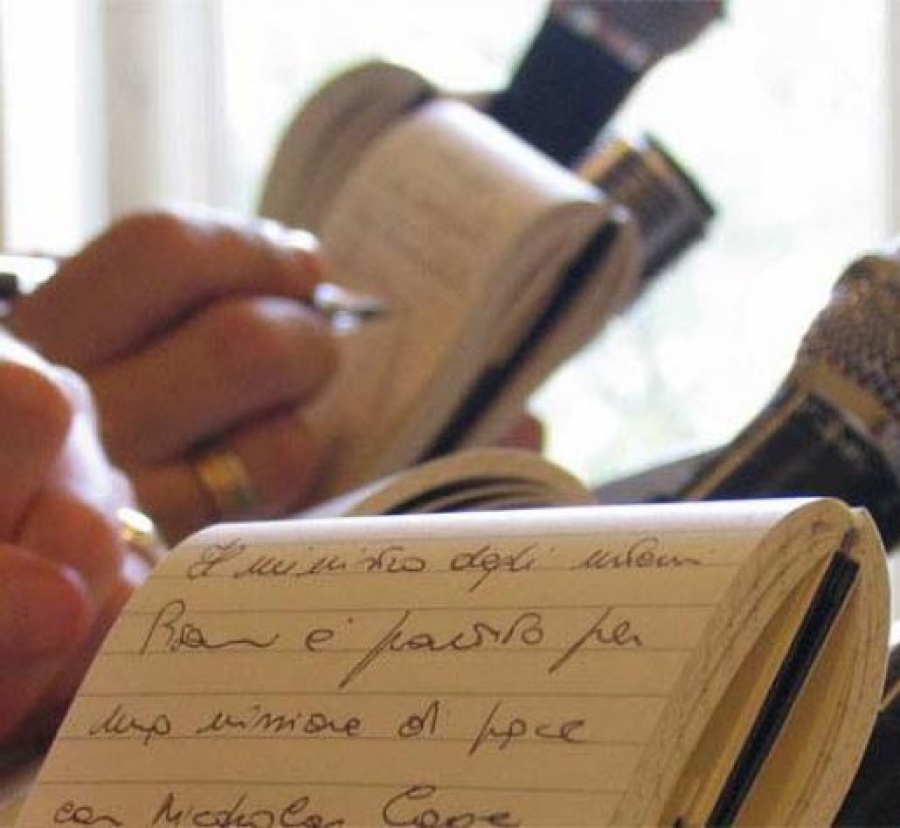 Il ministro degli interni
Pisanu è partito per
una missione di pace
con Nicholas Cage